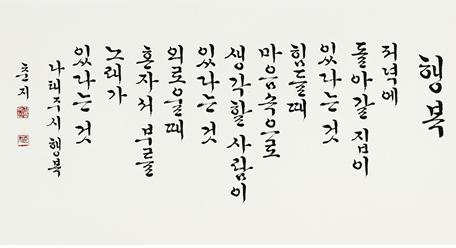 행복
저녁에
돌아갈 집이
있다는 것
힘들때
마음속으로
생각할 사람이
있다는 것
외로울때
혼자서 부를
노래가
있다는 것
나태주시 행복
춘지